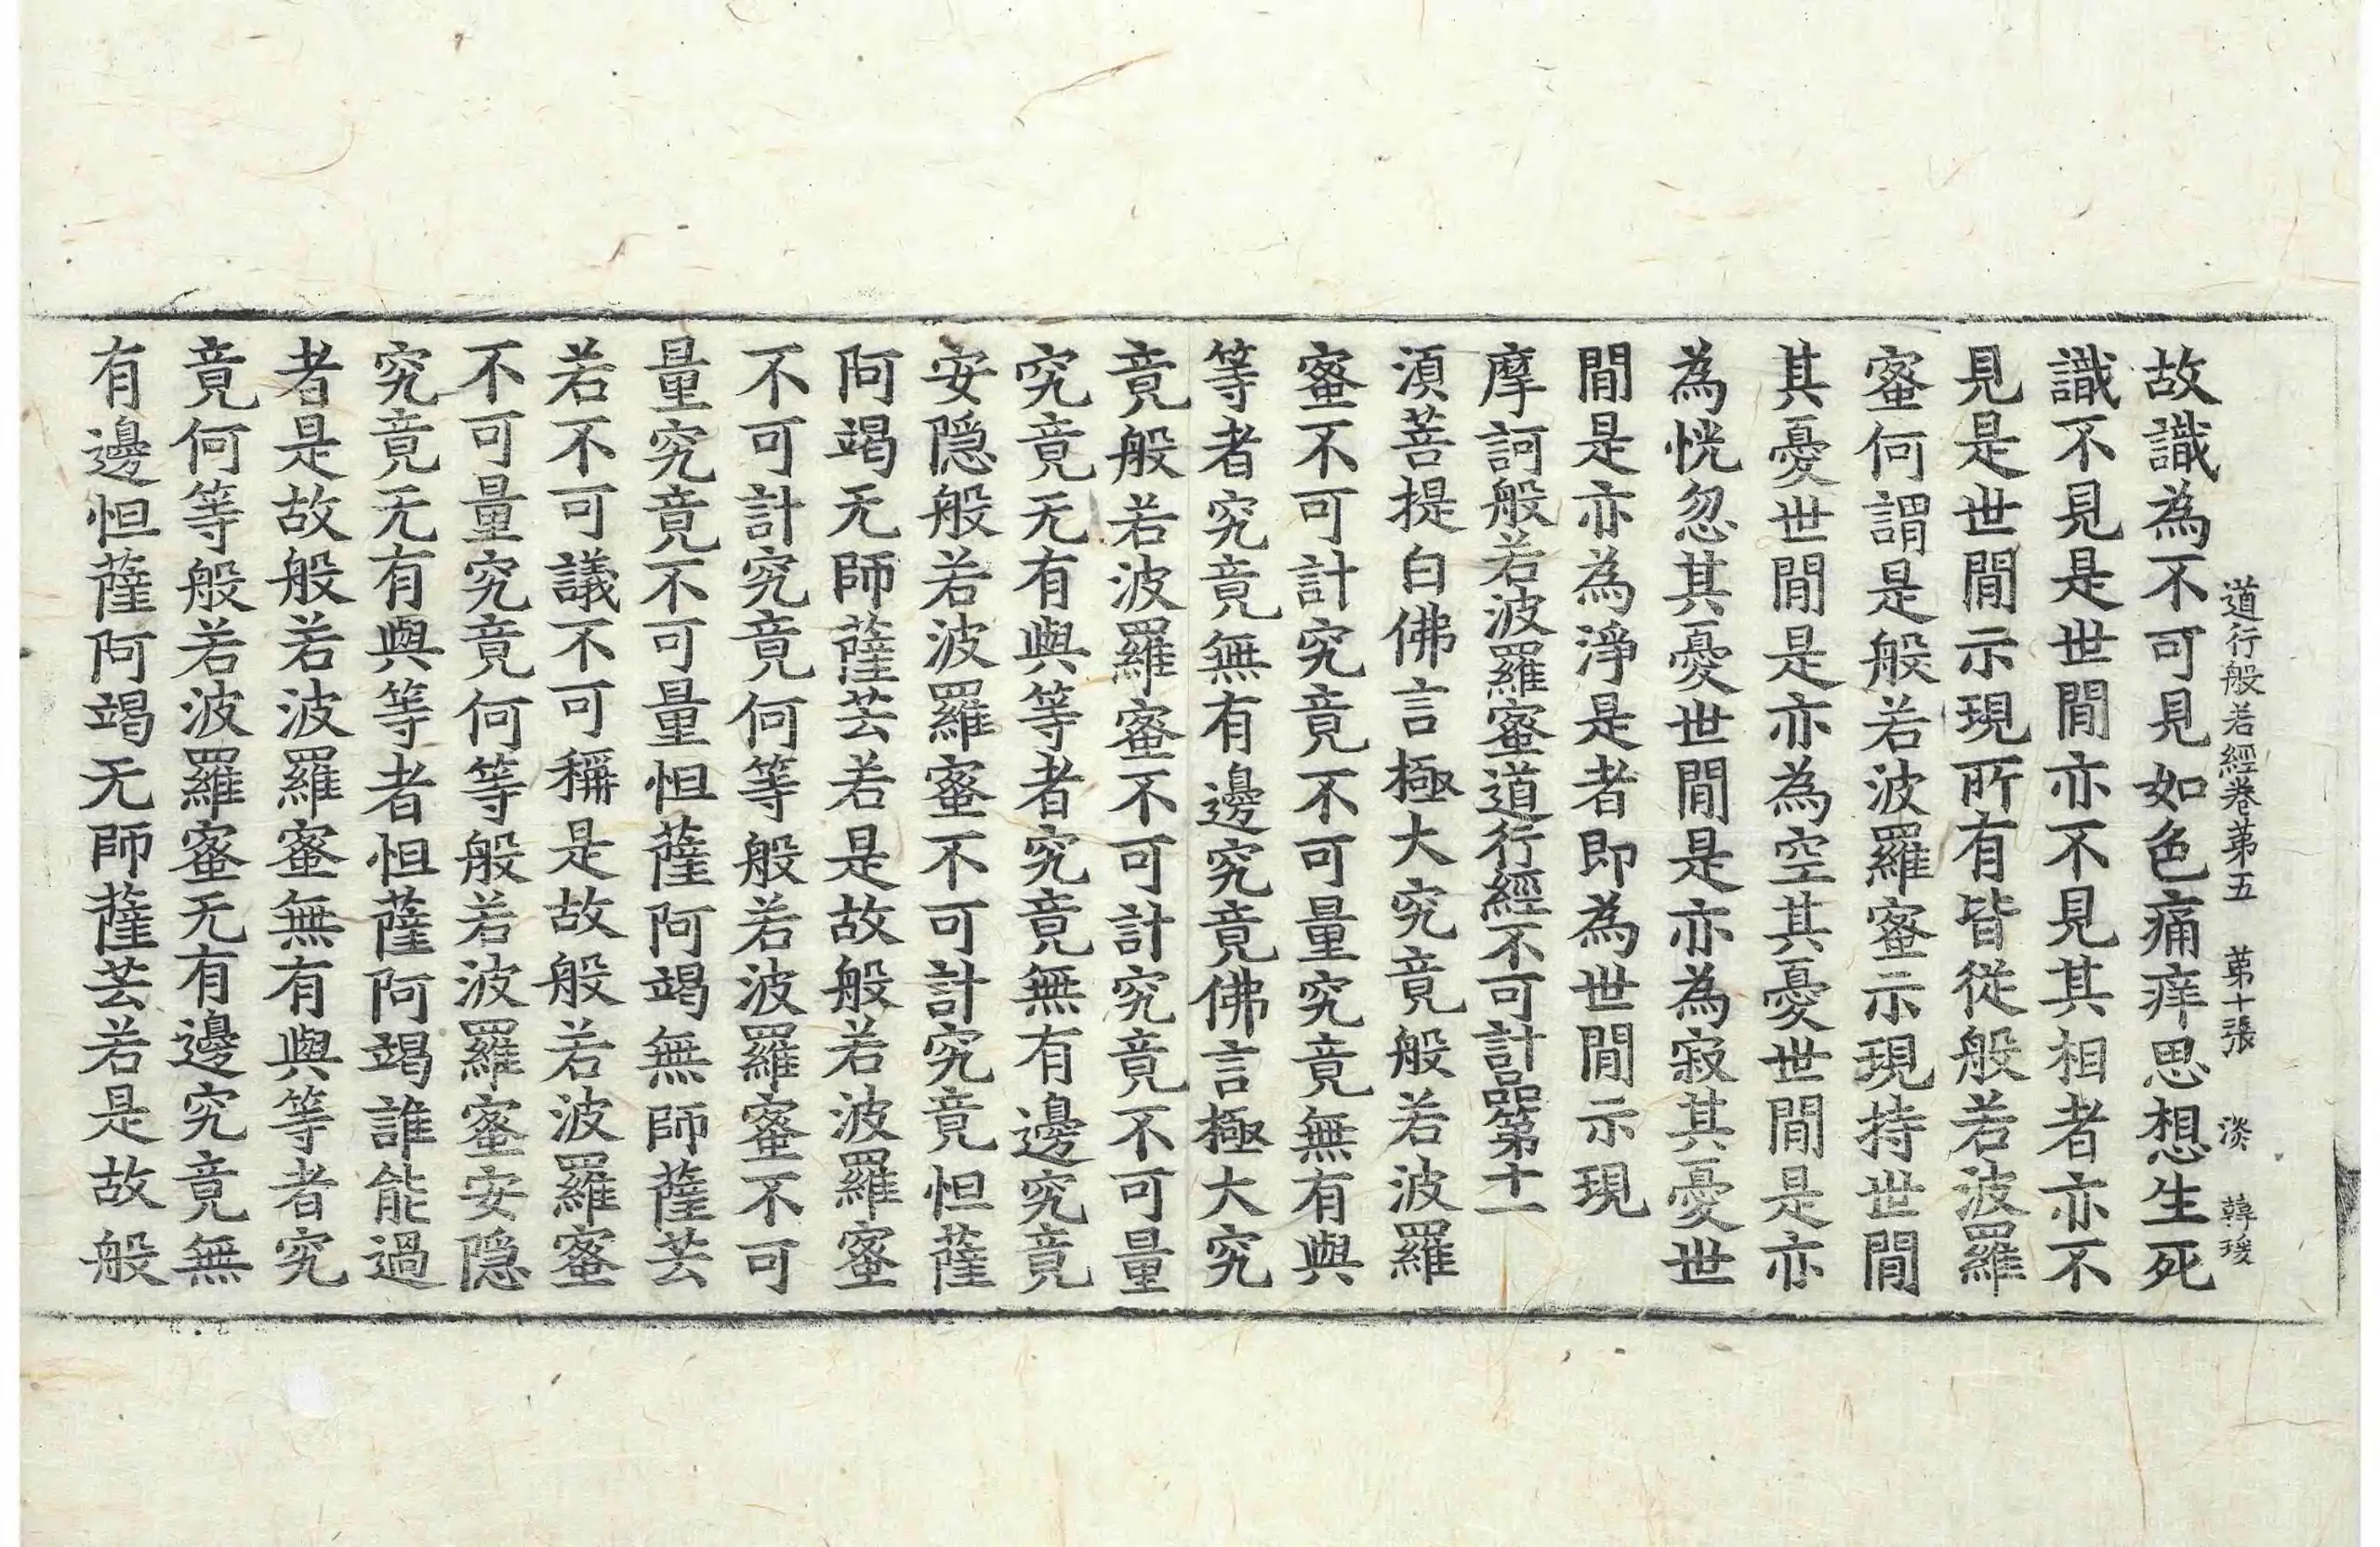 道行般若經卷第五 第十張 淡 韓瑗
故識為不可見如色痛痒思想生死
識不見是世閒亦不見其相者亦不
見是世閒示現所有皆從般若波羅
蜜何謂是般若波羅蜜示現持世閒
其憂世閒是亦為空其憂世閒是亦
為恍忽其憂世閒是亦為寂其憂世
閒是亦為淨是者即為世閒示現
摩訶般若波羅蜜道行經不可計品第十一
須菩提白佛言極大究竟般若波羅
蜜不可計究竟不可量究竟無有與
等者究竟無有邊究竟佛言極大究
竟般若波羅蜜不可計究竟不可量
究竟无有與等者究竟無有邊究竟
安隱般若波羅蜜不可計究竟怛薩
阿竭无師薩芸若是故般若波羅蜜
不可計究竟何等般若波羅蜜不可
量究竟不可量怛薩阿竭無師薩芸
若不可議不可稱是故般若波羅蜜
不可量究竟何等般若波羅蜜安隱
究竟无有與等者怛薩阿竭誰能過
者是故般若波羅蜜無有與等者究
竟何等般若波羅蜜无有邊究竟無
有邊怛薩阿竭无師薩芸若是故般